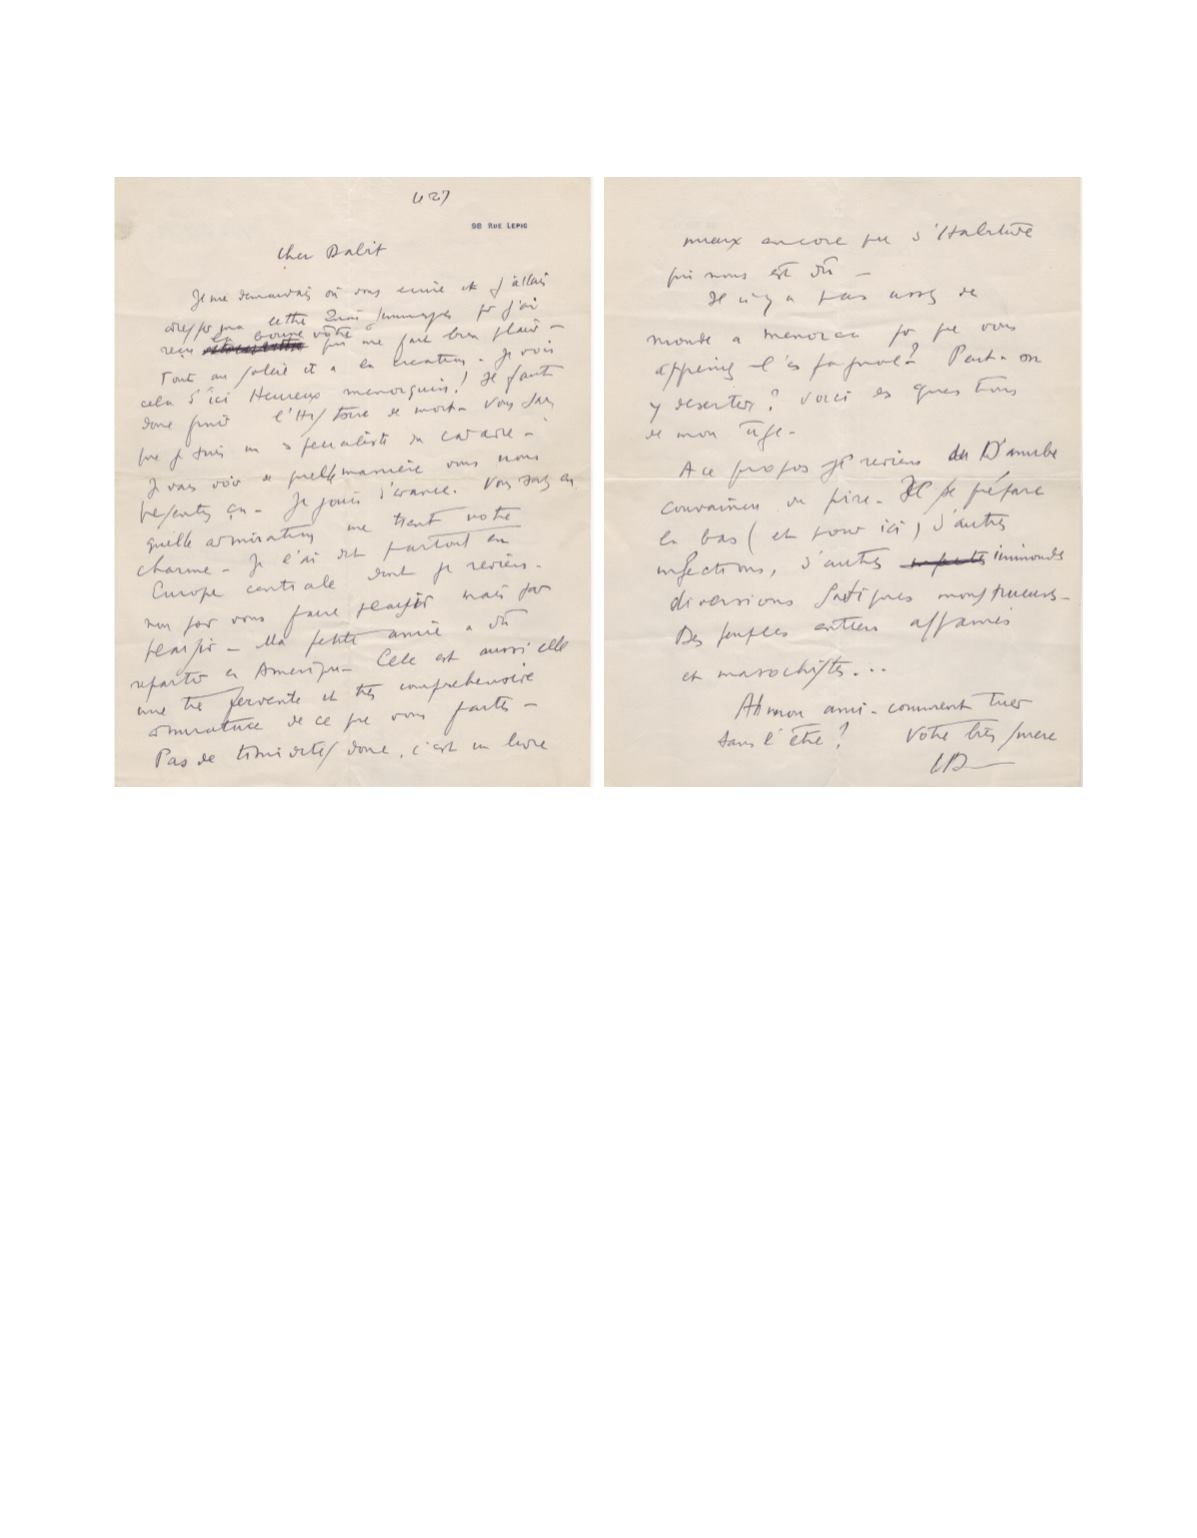 le 27
98 RUE LEPIC
Cher Dabit
Je me demandais où vous écrire et j'allais
cette Quai Jemmapes j'ai
reçu la bonne vôtre qui me fait bien plaisir –
Tout au soleil et à la création – Je vois
cela d'ici Heureux menorquin! Il faut
donc finir l'Histoire de mort – Vous savez
que je suis un spécialiste du cadavre –
Je vais voir de quelle manière vous nous
présentez ça – Je jouis d'avance. Vous savez en
quelle admiration me tient votre
charme – Je l'ai dit partout en
Europe centrale dont je reviens –
non pour vous faire plaisir mais par
plaisir – Ma petite amie a dû
repartir en Amérique – Cele est aussi elle
une très fervente et très compréhensive
admiratrice de ce que vous faites –
Pas de timidités donc, c'est un livre
mieux encore que d'Habitude
qui nous est dû –
Il n'y a pas assez de
monde à menorca pour que vous
appreniez l'espagnol? Peut-on
y deserter? Voici des questions
de mon âge –
A ce propos je reviens du Danube
convaincu du pire – Il se prépare
là bas (et pour ici) d'autres
infections, d'autres immondes
diversions sadiques monstrueuses –
Des peuples entiers affamés
et masochistes...
Ah mon ami – comment tuer
sans l'être? Votre très sincère
LD